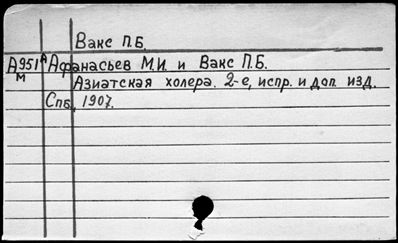 Вакс П.Б.
А951А Афанасьев М.И. и Вакс П.Б.
М Азиатская холера. 2-е, испр. и доп. изд.
Спб, 1907.